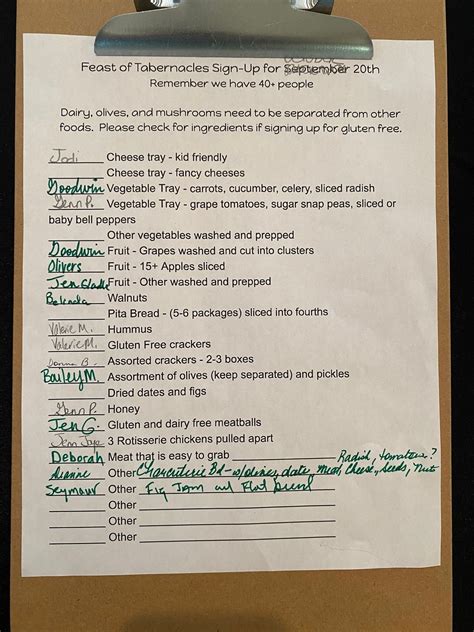 Feast of Tabernacles Sign-Up for September 20th
Remember we have 40+ people
Dairy, olives, and mushrooms need to be separated from other
foods. Please check for ingredients if signing up for gluten free.
Jodi Cheese tray - kid friendly
Cheese tray - fancy cheeses
Goodwin Vegetable Tray - carrots, cucumber, celery, sliced radish
Jenn P. Vegetable Tray - grape tomatoes, sugar snap peas, sliced or
baby bell peppers
Other vegetables washed and prepped
Goodwin Fruit - Grapes washed and cut into clusters
Olivers Fruit - 15+ Apples sliced
Jen Fruit - Other washed and prepped
Belinda Walnuts
Pita Bread - (5-6 packages) sliced into fourths
Valerie M. Hummus
Valerie M. Gluten Free crackers
Donna B. Assorted crackers - 2-3 boxes
Bailey M. Assortment of olives (keep separated) and pickles
Dried dates and figs
Jenn P. Honey
Jen G. Gluten and dairy free meatballs
Jenn 3 Rotisserie chickens pulled apart
Deborah Meat that is easy to grab Radish, tomatoes?
Dianne Other Charcuterie Bd - w/olives, dates, meat, cheese, seeds, nuts
Seymour Other Fig Jam w/ Flat bread
Other
Other
Other